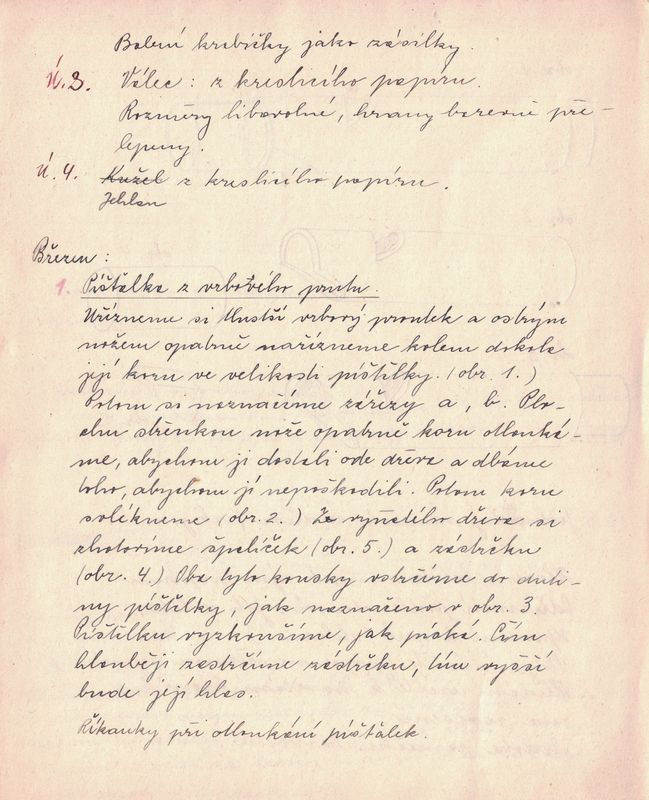 Balení krabičky jako zásilky.
Ú.3. Válec: z kreslicího papíru.
Rozměry libovolné, hrany barevně pře-
lepeny.
Ú.4. Kužel z kreslicího papíru.
Jehlan
Březen:
1. Píšťalka z vrbového prutu.
Uřízneme si tlustší vrbový proutek a ostrým
nožem opatrně nařízneme kolem dokola
její koru ve velikosti píšťalky. (obr. 1.)
Potom si naznačíme zářezy a, b. Plo-
chou střenkou nože opatrně koru otlouká-
me, abychom ji dostali ode dřeva a dbáme
toho, abychom ji nepoškodili. Potom koru
svlékneme (obr. 2.) Ze vyňatého dřeva si
zhotovíme špalíček (obr. 5.) a zástrčku
(obr. 4.) Oba tyto kousky vstrčíme do duti-
ny píšťalky, jak naznačeno v obr. 3.
Píšťalku vyzkoušíme, jak píská. Čím
hlouběji zastrčíme zástrčku, tím vyšší
bude její hlas.
Říkanky při otloukání píšťalek.